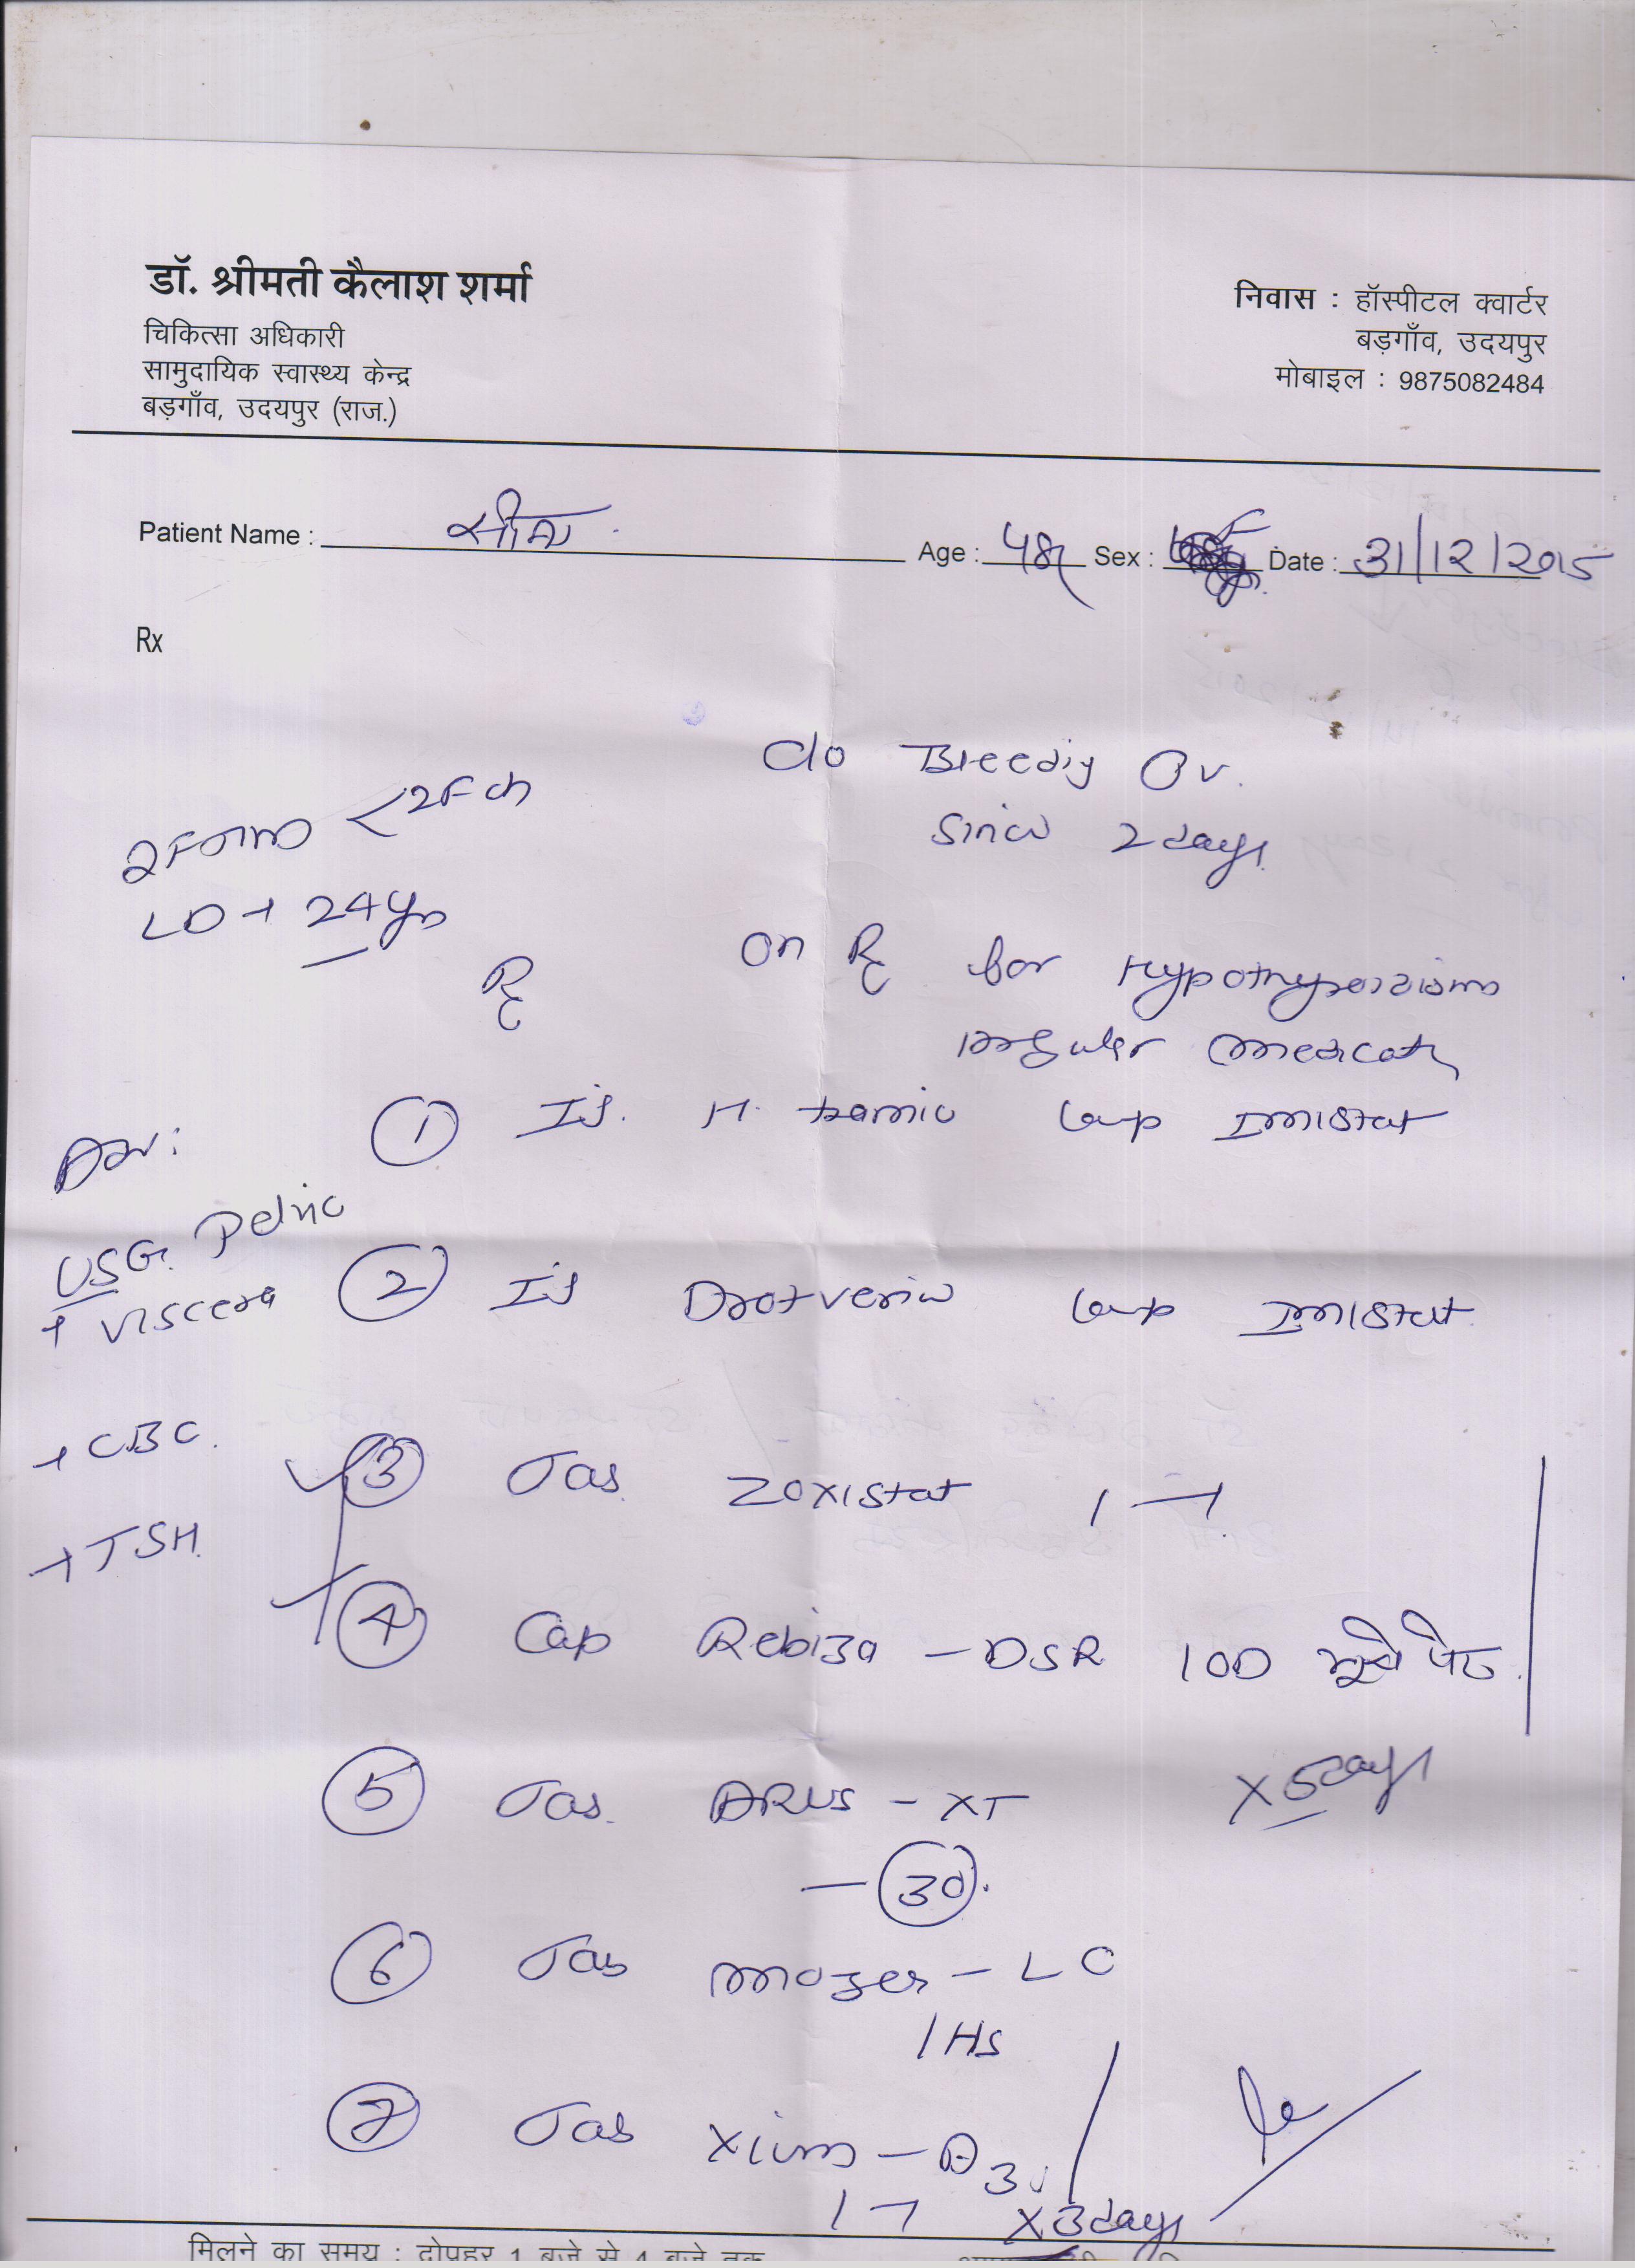 डॉ. श्रीमती कैलाश शर्मा
चिकित्सा अधिकारी
सामुदायिक स्वास्थ्य केन्द्र
बड़गाँव, उदयपुर (राज.)
निवास : हॉस्पीटल क्वार्टर
बड़गाँव, उदयपुर
मोबाइल : 9875082484
Patient Name : सीमा Age : 48 Sex : F Date : 31/12/2015
Rx
C/o Bleeding
Since 2 days
2FTND < 2Fch
LD → 24 yrs
On Rx for Hypothyroidism
irregular
Rx
① Inj. M. amp IM stat
Adv:
USG. Pelvic
+ viscera
② Inj Drotverin amp IM stat
+ CBC.
③ Tab. Zoxistat 1 — 1
+ TSH.
④ Cap Rebiza - DSR 1 OD भूखे पेट
x 5 days
⑤ Tab. - XT
- ㉚.
⑥ Tab - LC
1 HS
⑦ Tab Xium - D3
1 - 1 x 3 days
मिलने का समय : दोपहर 1 बजे से 4 बजे तक